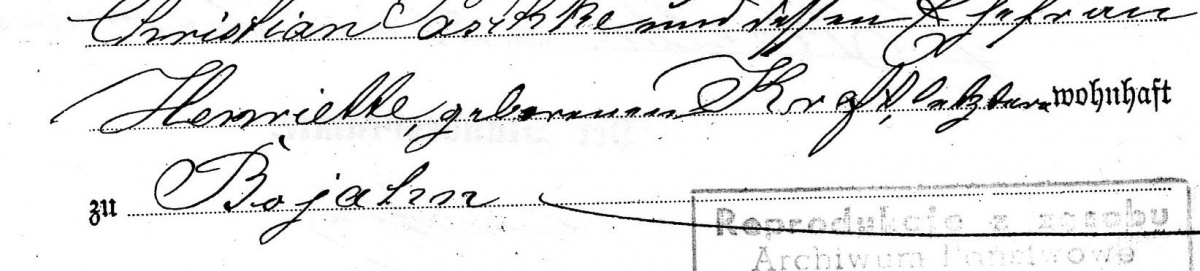 Christian Paschke und dessen Ehefrau
Henriette, geborenen Kraft, letztere wohnhaft
zu Bojahn
Reprodukcja z zasobu
Archiwum Państwowe